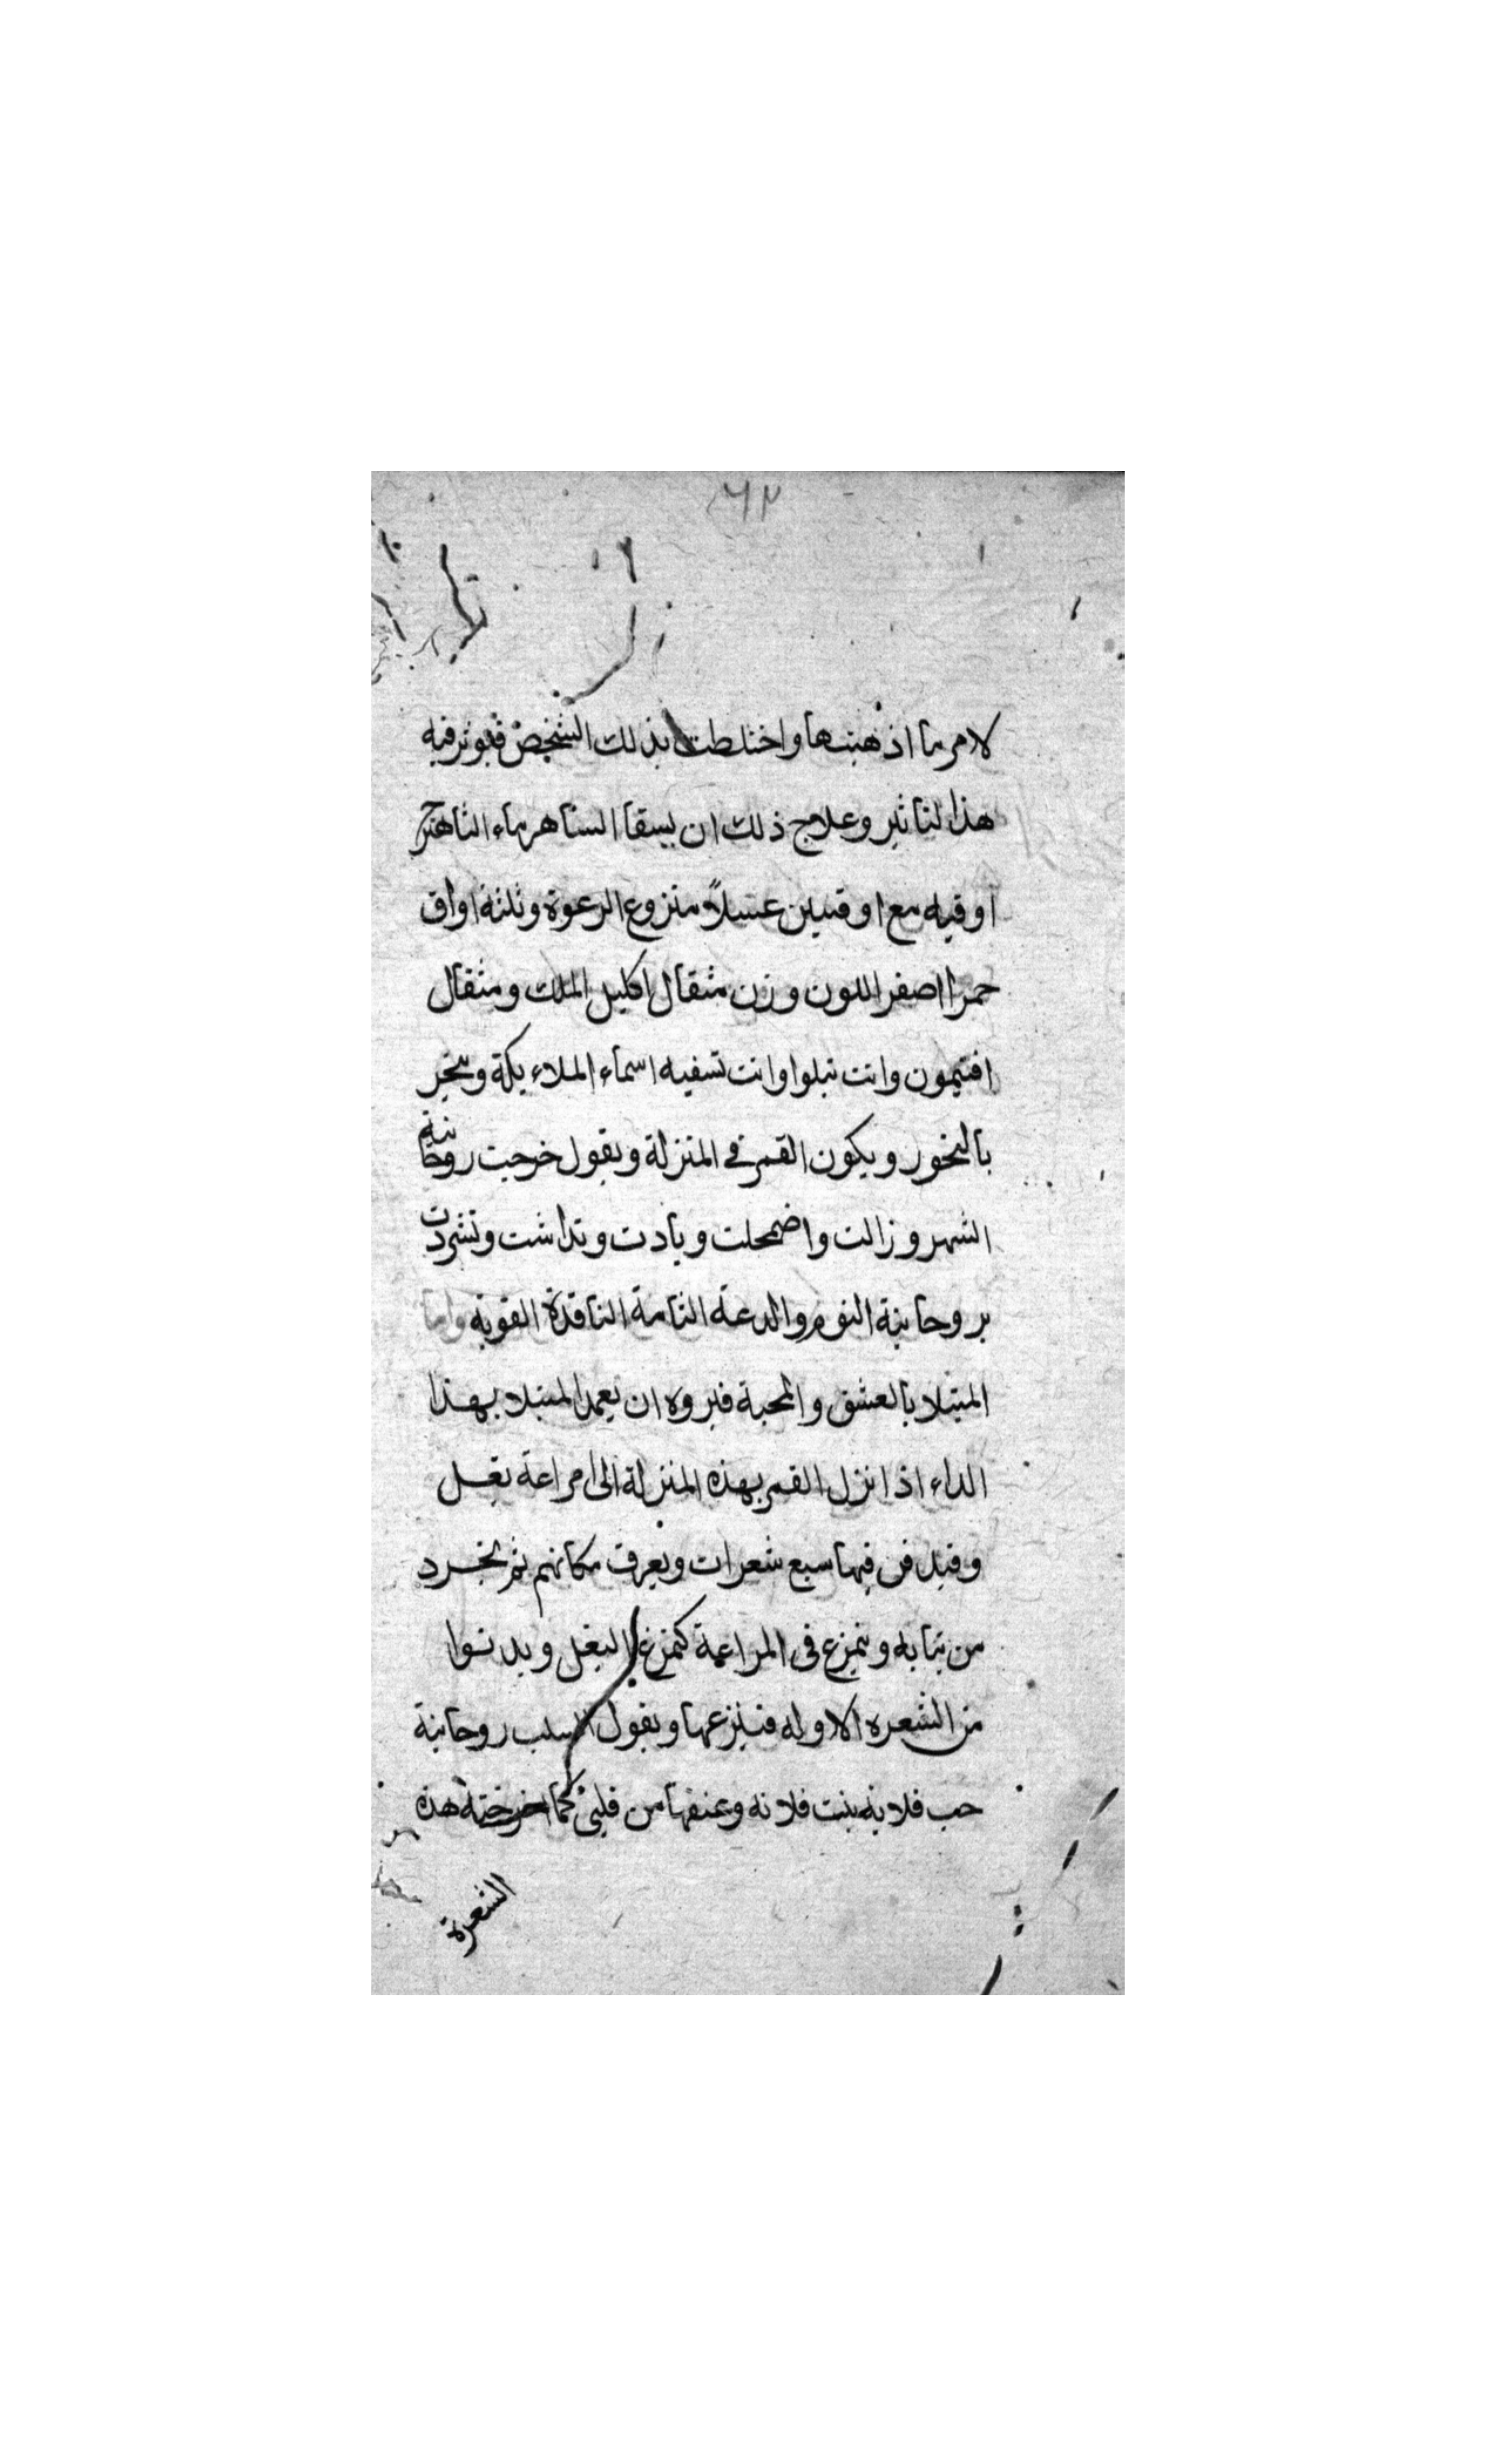 ٦٢
لامر ما اذهبتها واختلطت بذلك الشخص فيوثر فيه
هذا لتاثير وعلاج ذلك ان يسقا الساهر ماء الشاهترج
اوقيه مع اوقيتين عسلاً منزوع الرعوة وثلثة اواق
حمرا اصفر اللون وزن مثقال اكليل الملك ومثقال
افتيمون وانت تبلوا وانت تسقيه اسماء الملاءيكة وتبخر
بالبخور ويكون القمر في المنزلة ويقول خرجت روحانية
الشهر وزالت واضمحلت وبادت وتداشت وتشردت
بروحانية النوم والدعة التامة الناقدة القوية واما
المبتلا بالعشق والمحبة فبروه ان يعمد المبتلا بهذا
الداء اذا نزل القمر بهذه المنزلة الى مراعة بغل
وقيدفن فيها سبع شعرات ويعرف مكانهم ثم يتجرد
من ثيابه ويتمرع في المراعة كتمرغ البغل ويدنوا
من الشعره الاوله فينزعها ويقول اسلب روحانية
حب فلانه بنت فلانه وعنفها من قلبي كما اخرجته هذه
الشعرة